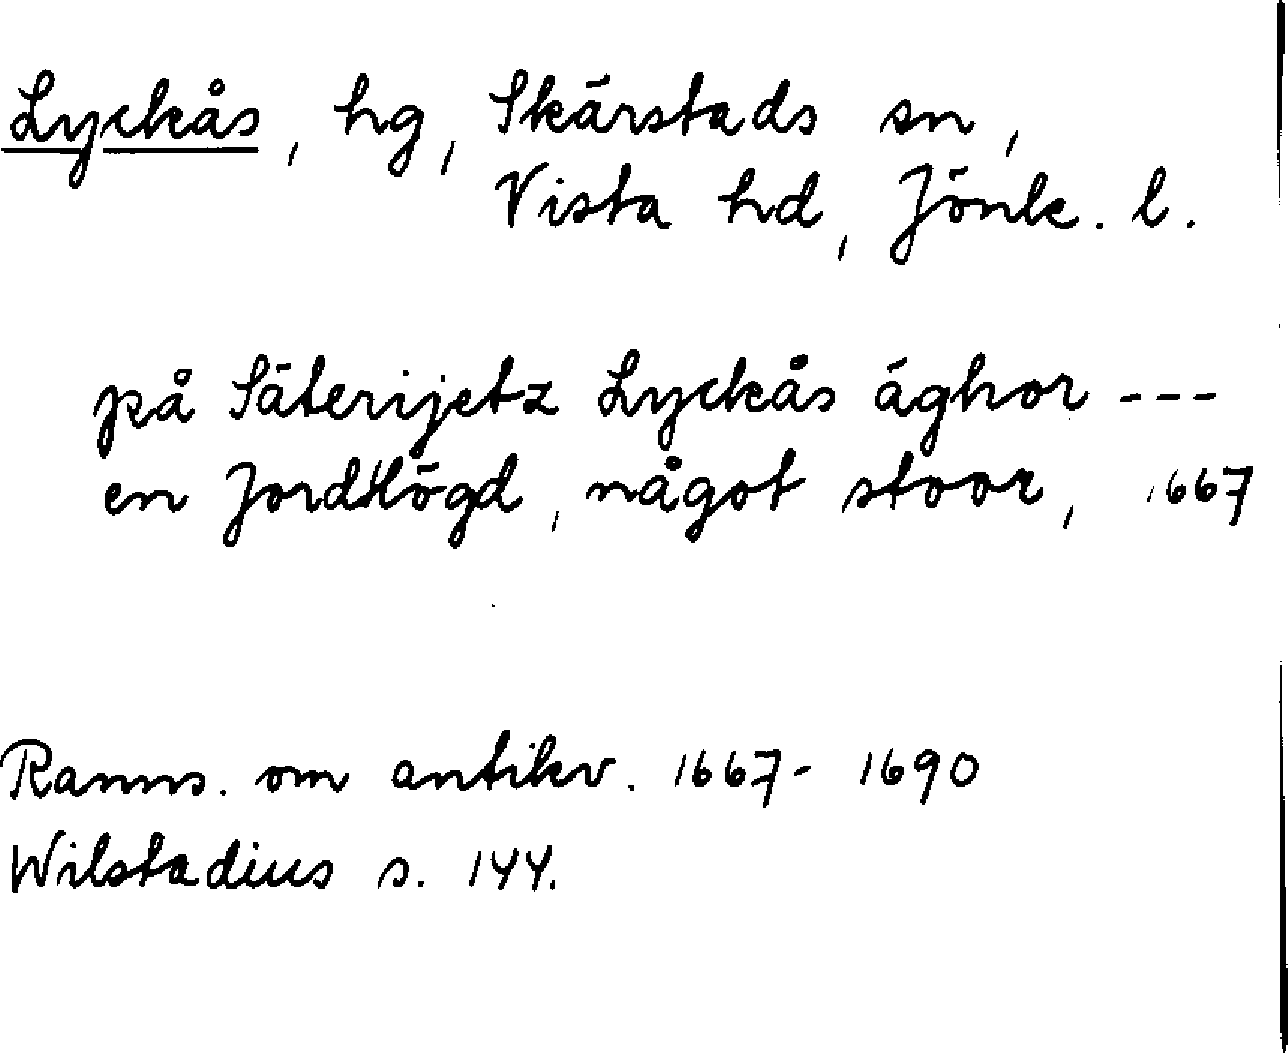 Lyckås, hg, Skärstads sn,
Vista hd, Jönk. l.
på Säterijetz Lyckås ághor ---
en JordHögd, något stoor, 1667
Ranns. om antikv. 1667- 1690
Wilstadius s. 144.